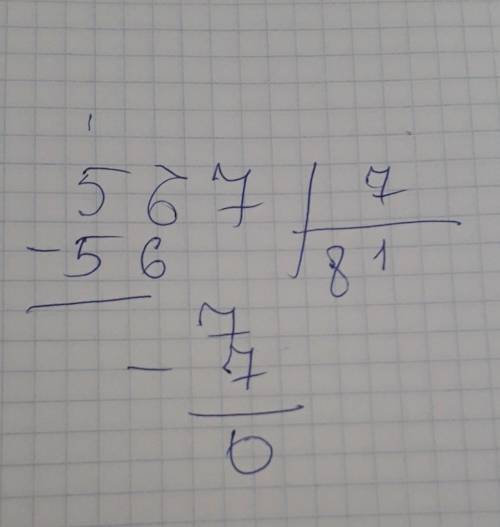 567 | 7
- 56 | 81
7
- 7
0